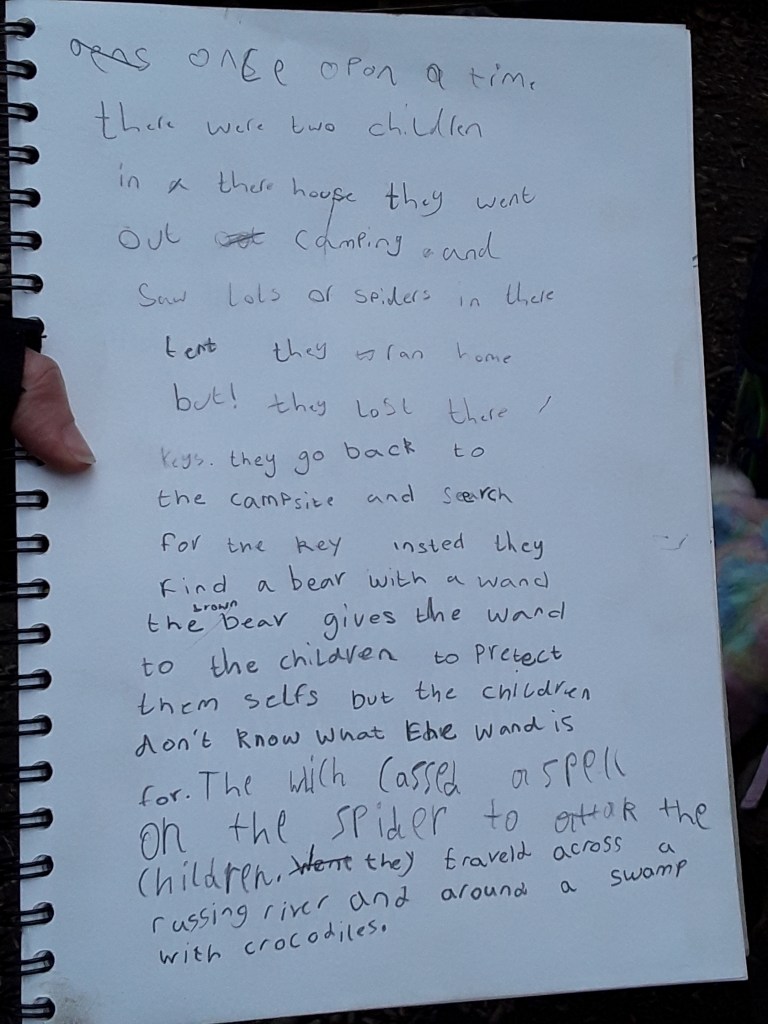 onse opon a time
there were two children
in there house they went
out camping and
Saw lots of spiders in there
tent they ran home
but! they lost there
keys. they go back to
the campsite and search
for the key insted they
find a bear with a wand
the brown bear gives the wand
to the children to pretect
them selfs but the children
don't know what the wand is
for. The wich cassed a spell
on the spider to attak the
children. they traveld across a
russing river and around a swamp
with crocodiles.